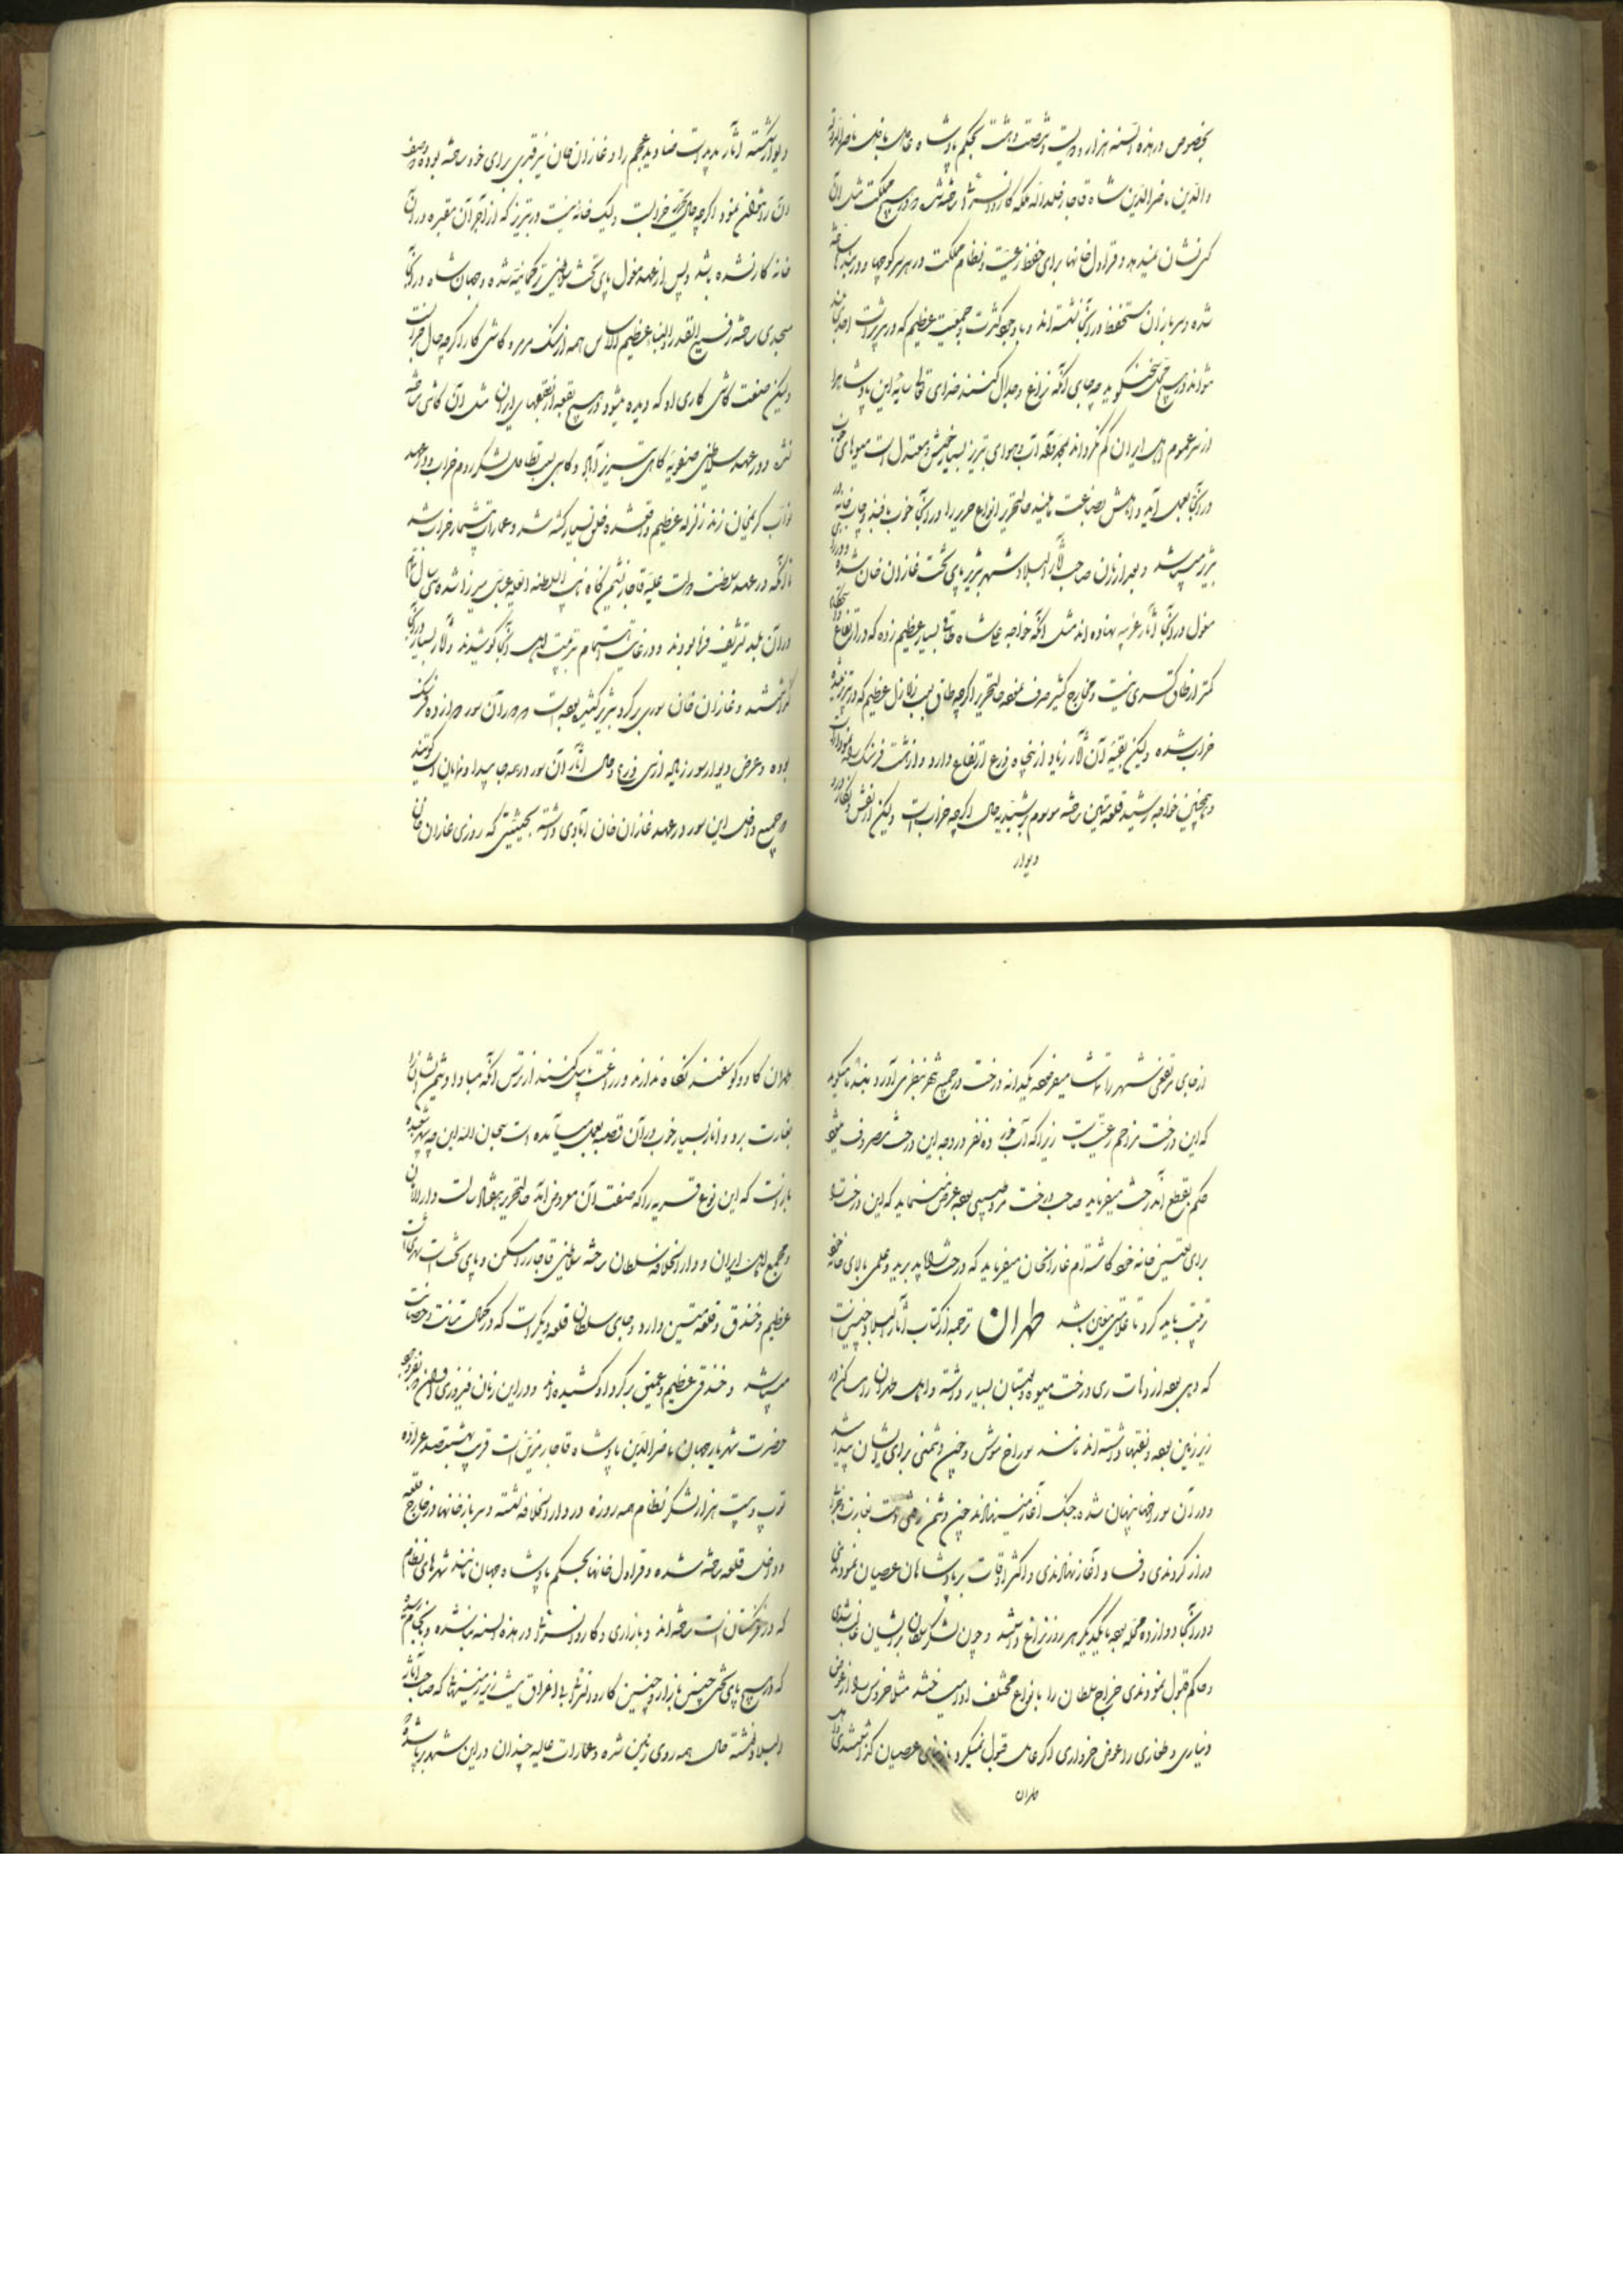 بخصوص در هذه السنه هزار و دویست و شصت و هشت بحکم پادشاه عادل باذل ناصر الدوله
والدین ناصرالدین شاه قاجار خلد الله ملکه کاروانسراها ساخته شد و در هیچ مملکت مثل آن
کس نشان نمیدهد و قراول خانها برای حفظ رعیت و نظام مملکت در هر سر کوچها و در بندها ساخته
شده و سربازان مستحفظ در آنجا نشسته اند و با وجود کثرت و جمعیت عظیم که در تبریز است احدی
نتواند در هیچ محل سخن بگوید چه جای آنکه نزاع و جدال کنند خدای تعالی سایه این پادشاه را
از سر عموم اهل ایران کم نگرداند بمحمد و آله آب و هوای تبریز بسیار خوش و معتدل است میوهای خوب
در آنجا بعمل آید و اهلش بضاعت انواع حریر را در آنجا خوب بافند و چاپ خانه
نیز میباشد و بعد از زمان صاحب آثار البلاد شهر تبریز پای تخت غازان خان شده
مغول در آنجا آثار غریبه نهاده اند مثل آنکه خواجه علیشاه طاق بسیار عظیم زده که در ارتفاع
کمتر از طاق کسری نیست و مخارج کثیر صرف نموده حال تحریر اگرچه طاق بسبب زلازل عظیم که در تبریز شده
خراب شده ولیکن بقیه آن آثار زیاد از پنجاه ذرع ارتفاع دارد و از هشت فرسنگ
و همچنین خواجه رشید قلعه متین ساخته موسوم برشیدیه حال اگرچه خراب است ولیکن از نقش و نگار
دیوار
دیوار شکسته آثار پدید است صنادید عجم را و غازان خان نیز قبری برای خود ساخته بوده
آن را شنب غازان نمود اگرچه حال تحریر خراب است ولیک خانه نیست در تبریز که از آجر آن مقبره در آن
خانه کار نشده باشد و پس از عهد مغول پای تخت سلاطین ترکمانیه شده و جهان شاه در آنجا
مسجدی ساخته رفیع القدر و البناء عظیم الاساس همه از سنگ مرمر و کاشی کار اگرچه حال خراب است
ولیکن صنعت کاشی کاری او که دیده میشود در هیچ بقعه از بقعهای ایران مثل آن کاشی ساخته
نشده و در عهد سلاطین صفویه گاهی تبریز آباد و گاهی بسبب تطاول لشکر روم خراب و در عهد
نواب کریمخان زند زلزله عظیم واقع شده خلق بسیار کشته شد و عمارات بیشمار خراب شد
تا آنکه در عهد سلطنت دولت علیه قاجار نشیمن گاه نایب السلطنه العلیه عباس میرزا شده و سی سال
در آن بلد تشریف فرما بودند و در غایت اهتمام تربیت اهالی آنجا کوشیدند و آثار بسیار در آنجا
گذاشتند و غازان خان سوری بر گرد تبریز کشیده بوده است و دور آن سور دوازده فرسنگ
بوده و عرض دیوار سور زیاده از سی ذرع و حال آثار آن سور در همه جا پیدا و نمایان است گویند
و جمیع داخل این سور در عهد غازان خان آبادی داشته بحیثیتی که روزی غازان خان
از جای مرتفعی شهر را تماشا میفرموده یکدانه درخت در جمیع شهر بنظرش در آورد
که این درخت مزاحم رعیت است زیرا که آب خور ده نفر در وجه این درخت مصروف میشود
حکم بقطع آندرخت میفرماید صاحب درخت مرد طبیبی بوده عرض مینماید که این درخت را
برای تعیین خانه خود کاشته ام غازانخان میفرماید که درخت را باید برید و علمی بالای خانه خود
ترتیب باید کرد تا علامتی معین باشد طهران ترجمه از کتاب آثار البلاد چنین است
که دهی بوده از دهات ری درخت میوه و بستان بسیار داشته و اهل طهران را مساکن در
زیر زمین بوده و نقبها داشته اند مانند سوراخ موش و چون دشمنی برای ایشان پیدا شد
و در آن سوراخها پنهان شده جنگ آغاز مینهادند چون دشمن دست بغارت
دراز کردندی و فساد آغاز نهادندی و اکثر اوقات بر پادشاهان عصیان نمودندی
و در آنجا دوازده محله بوده با یکدیگر هر روز نزاع داشتند و چون لشکر سلطان بر ایشان غالب شدی
و حاکم قبول نمودندی خراج سلطان را بانواع مختلف ادا میساختند مثلا خروس را در عوض
دیناری و طغاری را عوض خرواری اگر عامل قبول نمیکرد باز بنای عصیان گذاشتندی
طهران
طهران گاو و گوسفند نگاه ندارند و زراعت با بیل کنند از ترس آنکه مبادا دشمن ایشانرا
بغارت برد و انار بسیار خوب در آن قصبه بعمل میآمده است سبحان الله این چه سپهر شعبده
باز است که این نوع قریه را که صفت آن معروض آمد حال تحریر دار الامان
و مجمع اهل ایران و دار الخلافه سلطان ساخته سلاطین قاجار را مسکن و پای تخت است شهری است
عظیم و خندق و قلعه متین دارد و جای سلطان قلعه دیگر است که در کمال متانت و حصانت
میباشد و خندقی عظیم و عمیق بر گرد او کشیده اند و در این زمان فیروزی
حضرت شهریار جهان ناصرالدین پادشاه قاجار مزین است قریب بهشتصد عراده
توپ و بیست هزار لشکر نظام همه روزه در دارالخلافه نشسته و سربازخانها در خارج قلعه
و داخل قلعه ساخته شده و قراول خانها بحکم پادشاه جهان مانند شهرهای نظام
که در فرنگستان است ساخته اند و بازاری و کاروانسراها در هذه السنه بنا شده
که در هیچ پای تختی چنین بازار و چنین کاروانسرا بلا اغراق نیست زیر زمینها که صاحب آثار
البلاد نوشته حال همه روی زمین شده و عمارات عالیه چندان در این شهر برپا شده